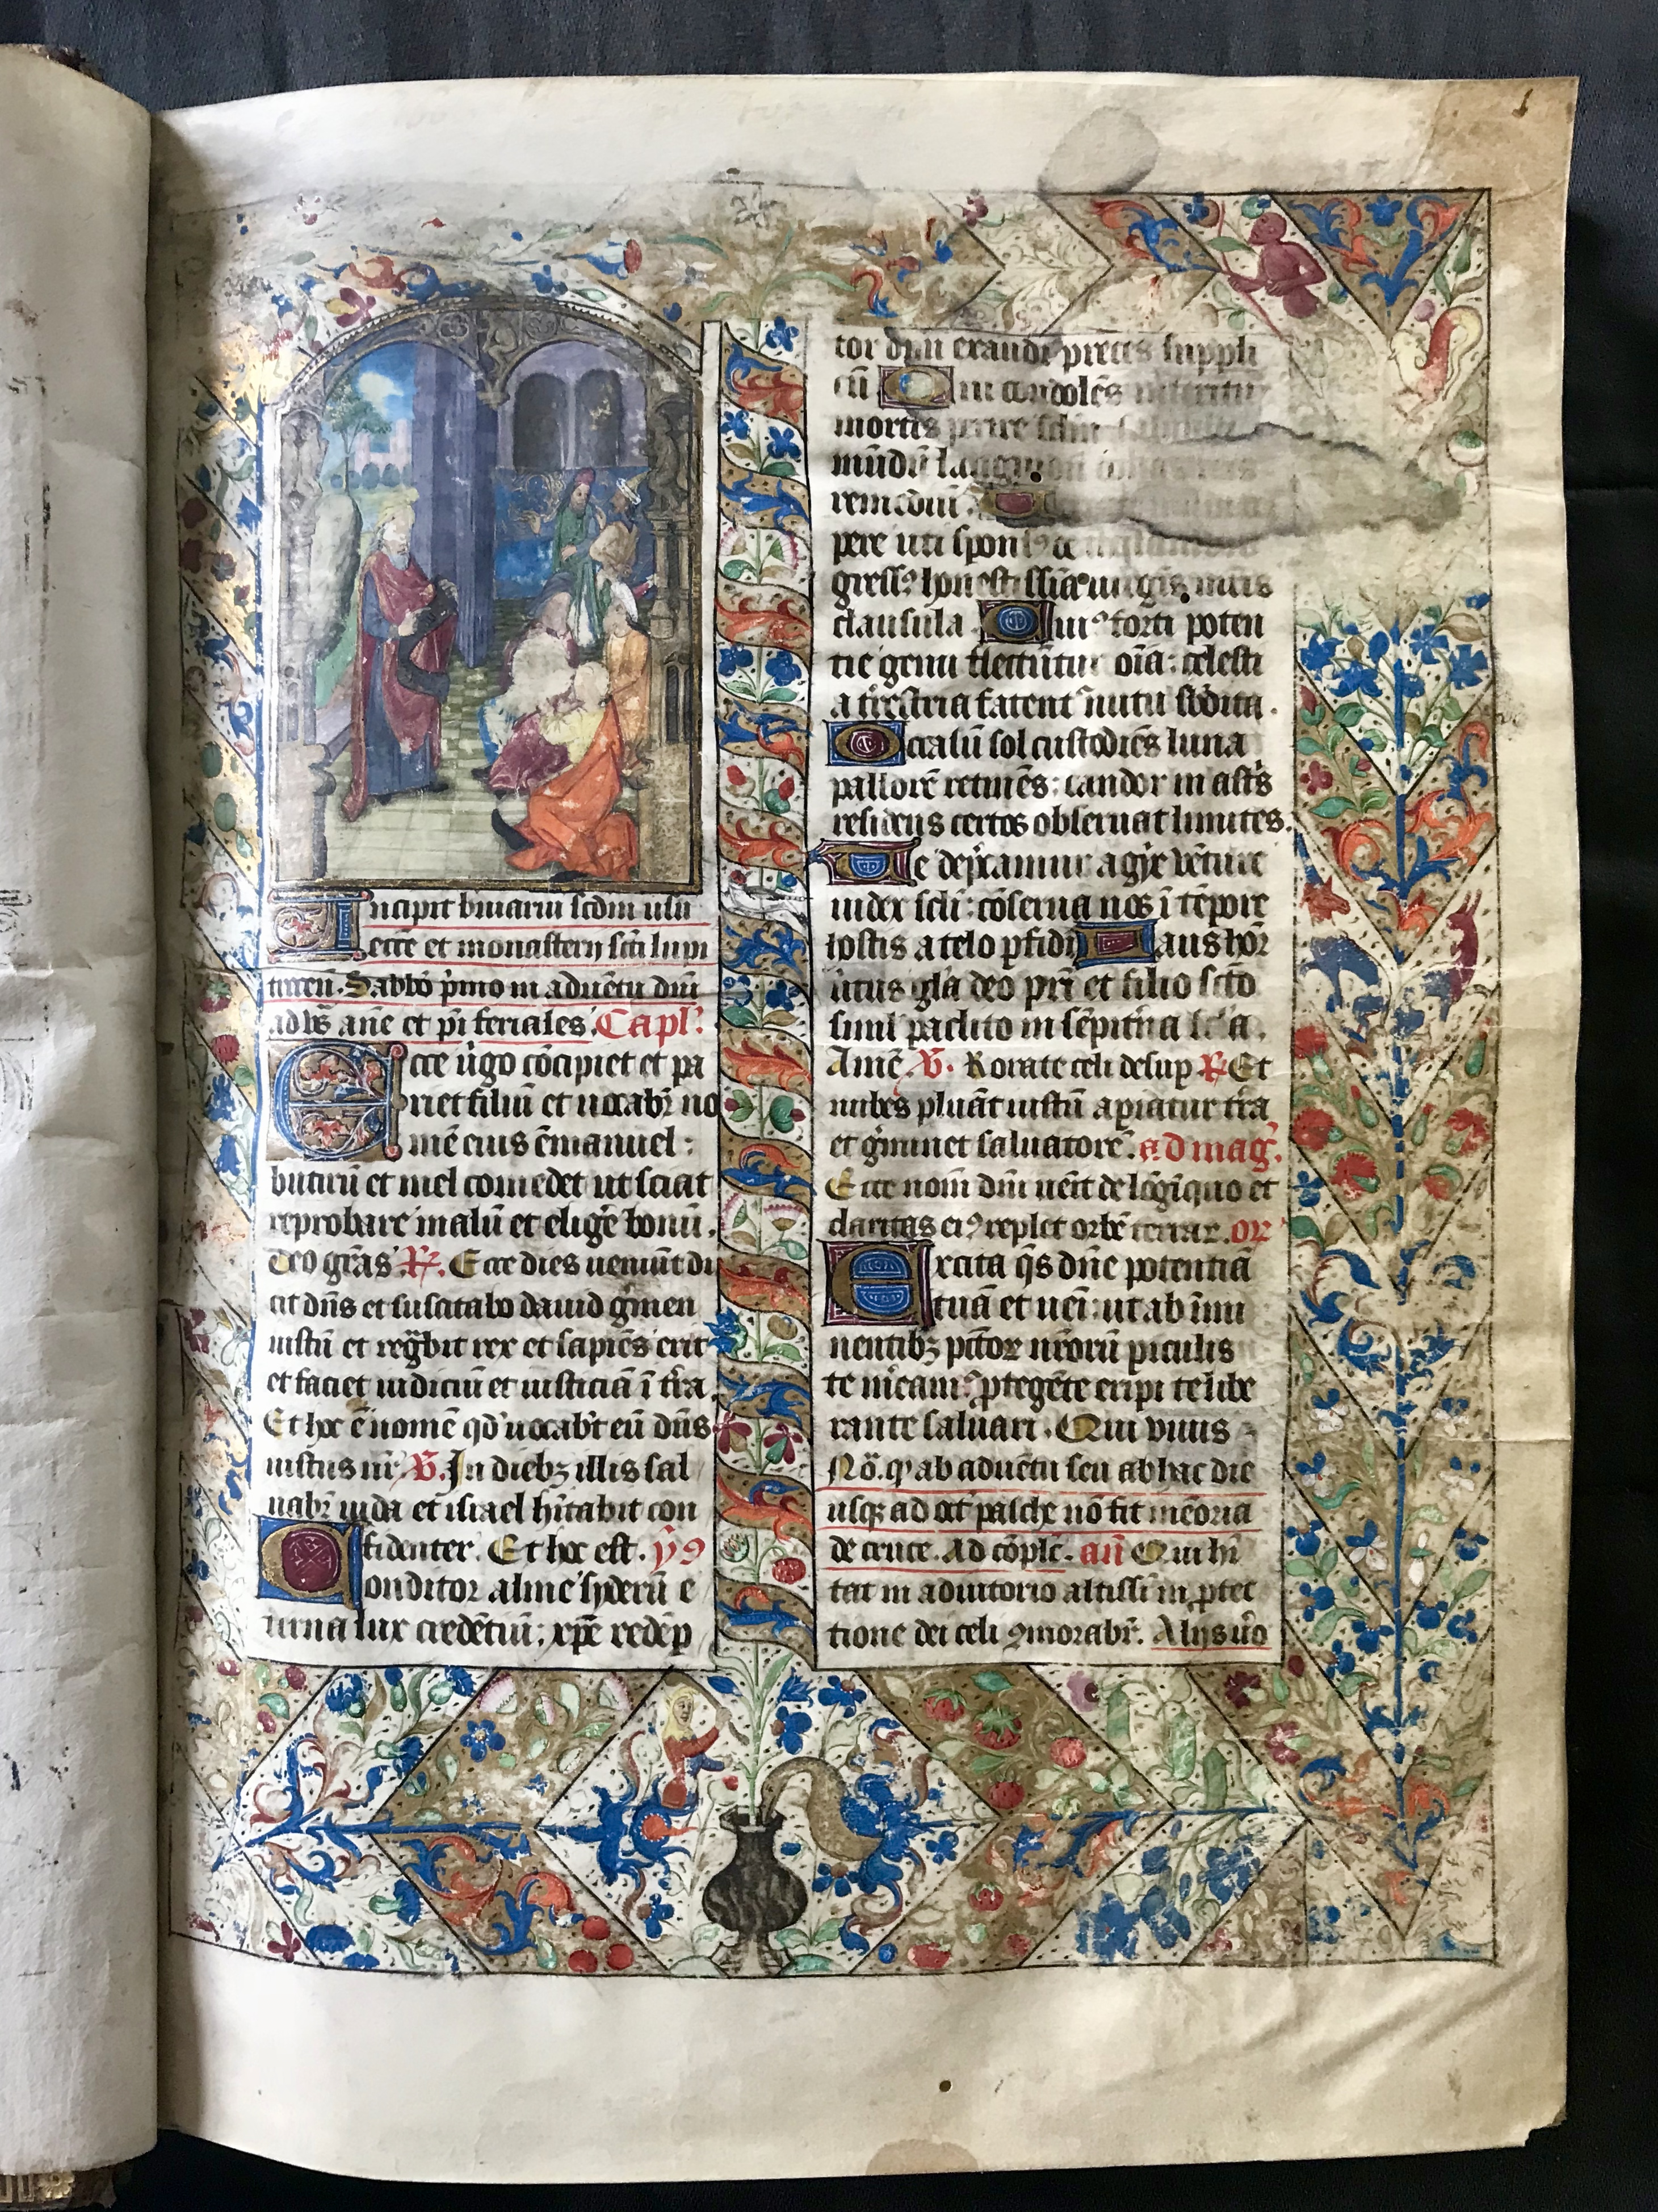 Incipit breuiariũ scdm usũ
eccẽ et monasterij scti lupi
trecen̄. Sabbõ p̃mo in aduẽtu dñi
ad vs̃ añe et ps̃ feriales. Capl̃.
Ecce ũgo cõcipiet et pa
riet filiũ et uocabr̃ no
mẽ eius ẽmanuel:
butirũ et mel comedet ut sciat
reprobare malũ et elige bonũ.
deo gras̃. R̃. Ecce dies ueniũt di
cit dñs et suscitabo dauid gm̃en
iustũ et regb̃it rex et sapiẽs erit
et faciet iudiciũ et iusticiã ĩ tr̃a.
Et hoc ẽ nomẽ qd̃ uocabr̃t eũ dñs
iustus nr̃. V̄. In diebꝫ illis sal
uabr̃ iuda et israel hĩtabit con
fidenter. Et hoc est. yꝰ
Conditor alme syderũ e
terna lux credẽtiũ: xp̃e redẽp
tor oĩm exaudi preces suppli
cũ Qui condolẽs interitu
mortis perire
mũdũ
remediũ.
pere uti sponsꝰ de
gressꝰ honestissĩa uirgĩs mr̃is
clausula Cuiꝰ forti poten
tie genu flectũtur oĩa: celesti
a tr̃estria fatent̃ nutu sbdita.
Occasũ sol custodiẽs luna
pallorẽ retinẽs: candor in astr̃s
relidens certos obseruat limites.
Te dep̃camur agye vẽture
iudex scl̃i: cõserua nos ĩ tẽpore
hostis a telo p̃fidi Laus hõr
ũtus gl̃a deo pr̃i et filio scto
simul paclito in sẽpitr̃na sc̃a.
Amẽ. V̄. Rorate celi desup R̃ Et
nubes pluãt iustũ apiatur tr̃a
et gm̃inet saluatorẽ. ad mag̃.
Ecce nom̃ dñi uẽit de lõgĩquo et
claritas eiꝰ replet orbẽ terrar. or
Excita qs̃ dñe potentiã
tuã et ueĩ: ut ab ĩmi
nentibꝫ pc̃tor nr̃orũ piculis
te mẽamꝰ ꝓtegẽte eripi te libe
rante saluari. Qui viuis
Nõ. qꝰ ab aduẽtu seu ab hac die
usqꝫ ad oct̃ pasche nõ fit mẽoria
de cruce. Ad cõplc̃. añ Qui hĩ
tat in adiutorio altissĩ in ꝓtec
tione dei celi ꝯmorabr̃. Alijs ũo